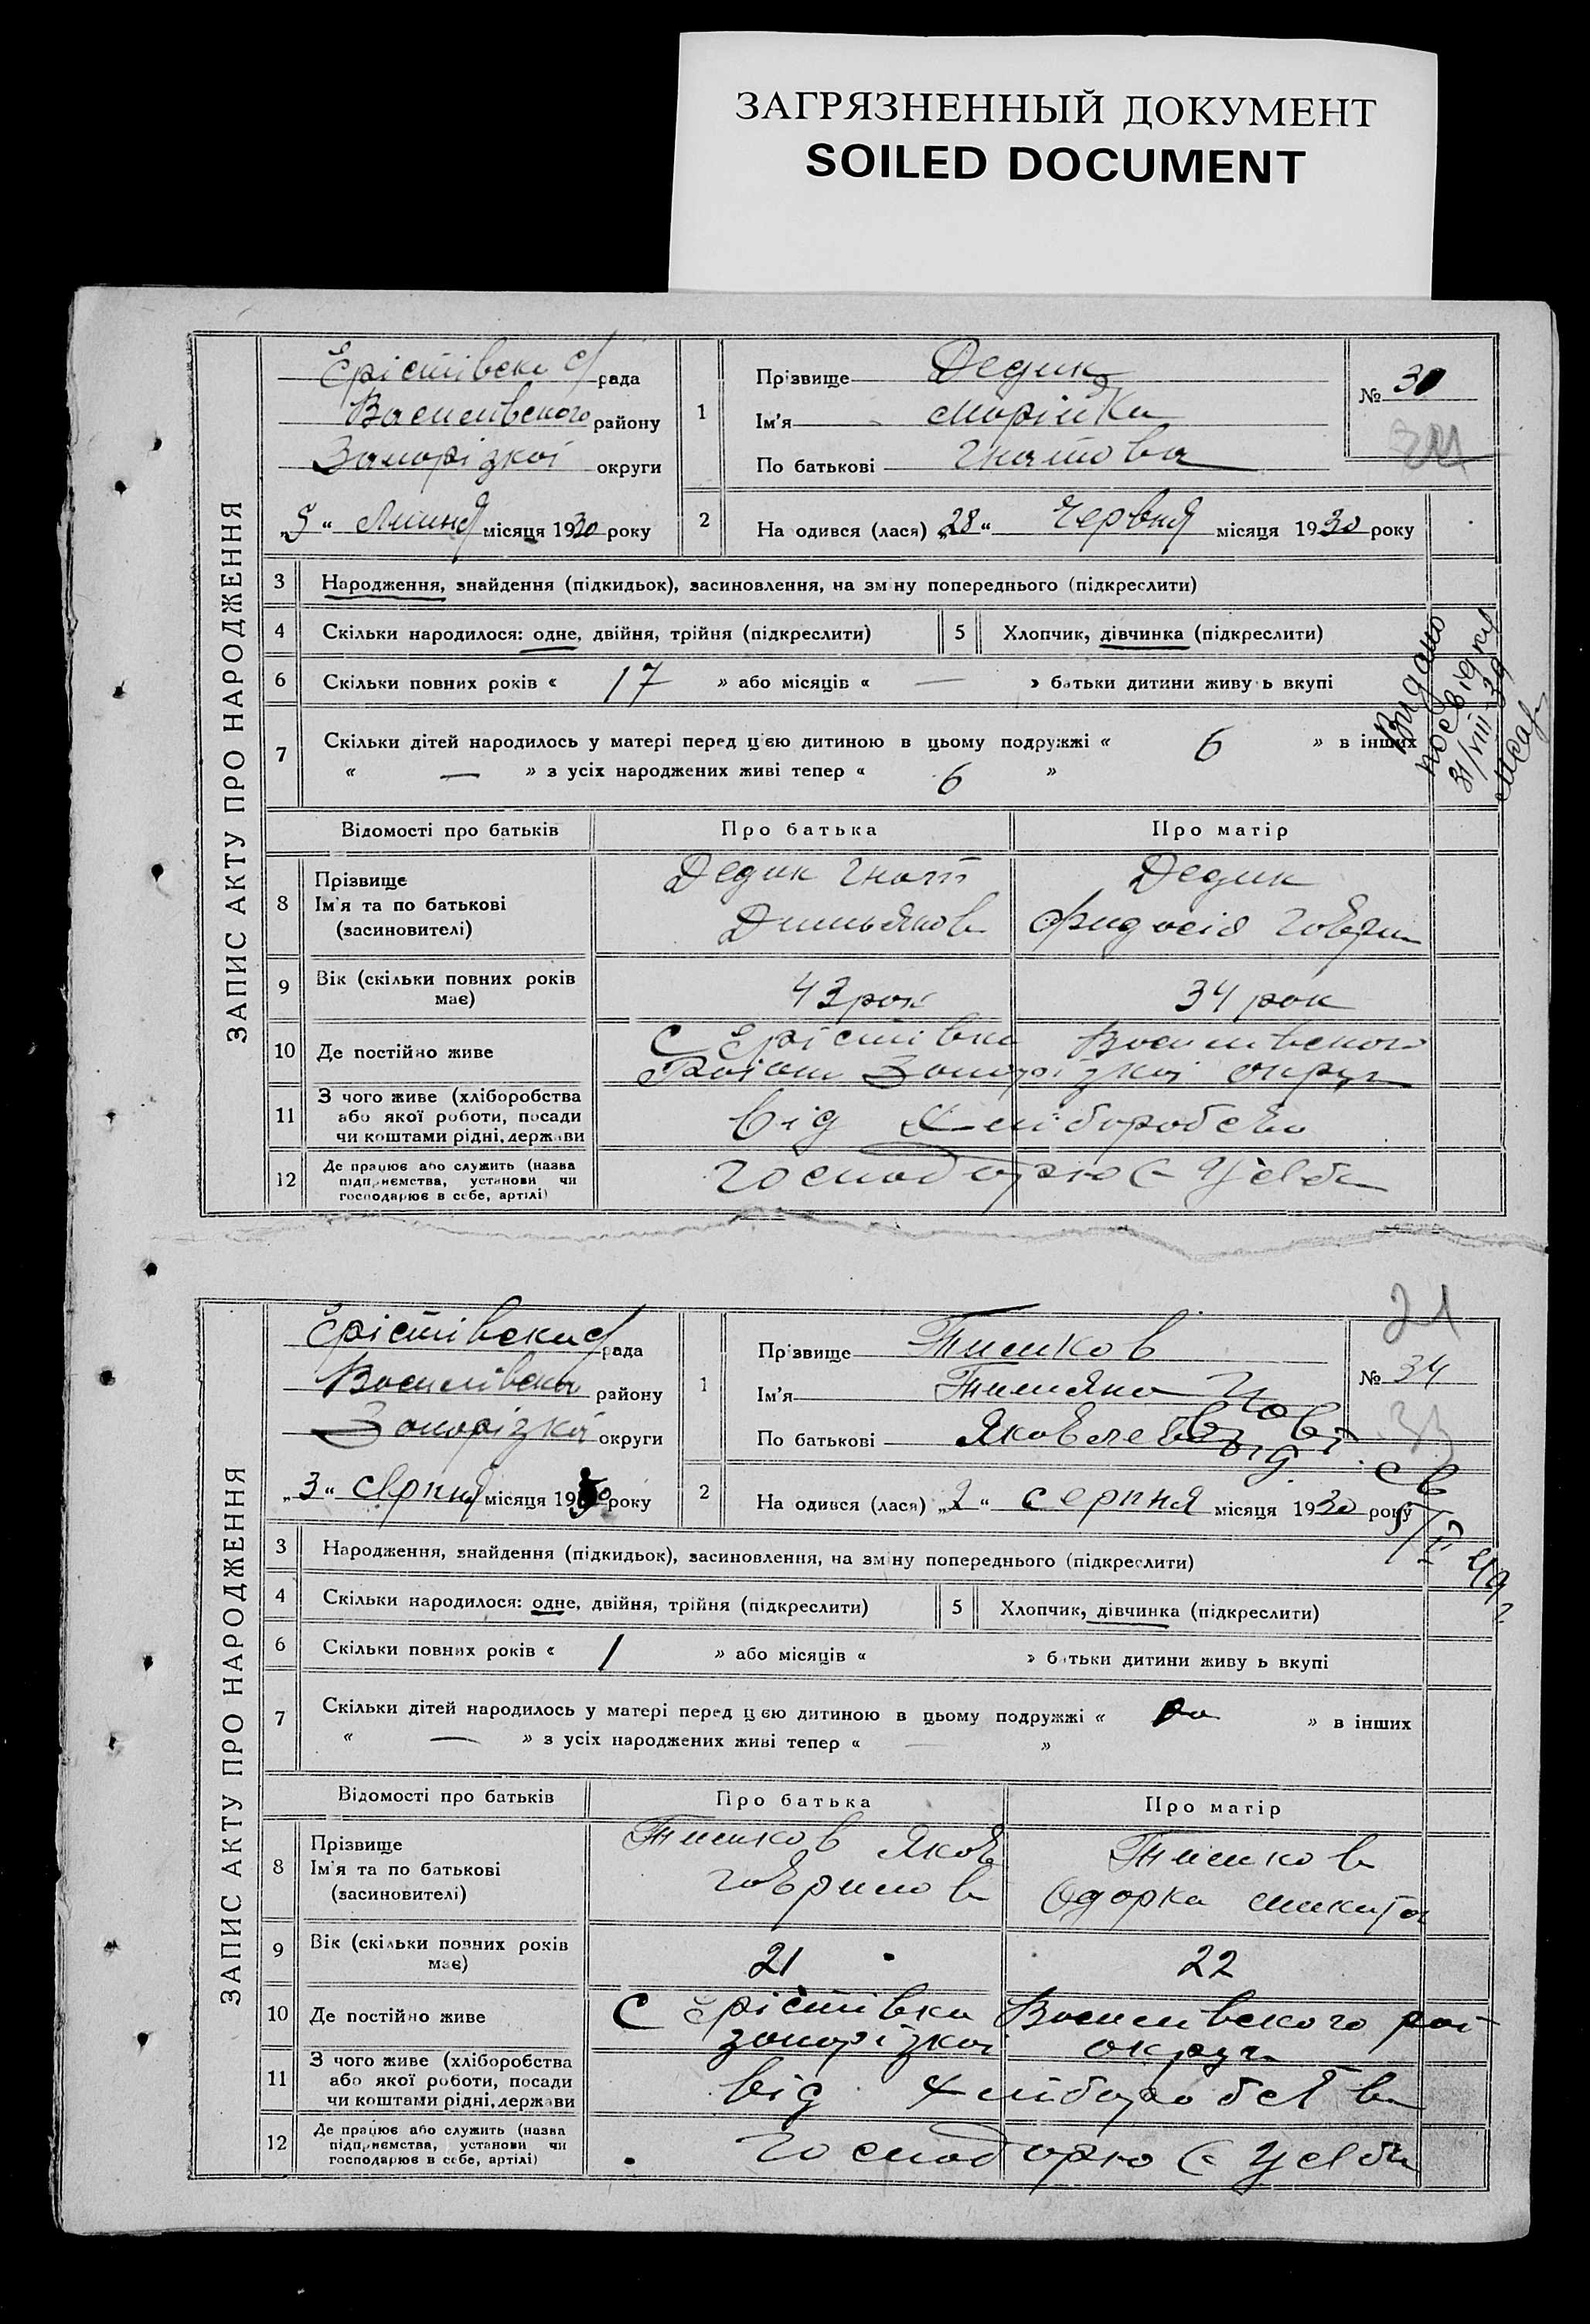 ЗАГРЯЗНЕННЫЙ ДОКУМЕНТ
SOILED DOCUMENT
ЗАПИС АКТУ ПРО НАРОДЖЕННЯ
Єрістівська с/рада
Василівского району
Запорізкої округи
„5“ Липня місяця 1930 року
1
Прізвище Дедик
Ім'я Марійка
По батькові Гнатова
№ 30
2
На одився (лася) „28“ Червня місяця 1930 року
3 Народження, знайдення (підкидьок), засиновлення, на зміну попереднього (підкреслити)
4 Скільки народилося: одне, двійня, трійня (підкреслити)
5 Хлопчик, дівчинка (підкреслити)
6 Скільки повних років « 17 » або місяців « — » батьки дитини живуть вкупі
7 Скільки дітей народилось у матері перед цією дитиною в цьому подружжі « 6 » в інших
« — » з усіх народжених живі тепер « 6 »
Видано
посвідку
31/VIII-39
Відомості про батьків
Про батька
Про матір
8 Прізвище
Ім'я та по батькові
(засиновителі)
Дедик Гнат
Демьянов
Дедик
Фидосія Говри
9 Вік (скільки повних років
має)
43 рок
34 рок
10 Де постійно живе
С Єрістівка Василивского
Району Запорізкої округи
11 З чого живе (хліборобства
або якої роботи, посади
чи коштами рідні, держави
від Хліборобсво
12 Де працює або служить (назва
підприємства, установи чи
господарює в себе, артілі)
Господорює Усебе
ЗАПИС АКТУ ПРО НАРОДЖЕННЯ
Єрістівська с/рада
Василівська району
Запорізкої округи
„3“ Серпня місяця 1930 року
21
1
Прізвище Тишков
Ім'я
По батькові Яковлева
№ 34
33
2
На одився (лася) „2“ серпня місяця 1930 року
3 Народження, знайдення (підкидьок), засиновлення, на зміну попереднього (підкреслити)
4 Скільки народилося: одне, двійня, трійня (підкреслити)
5 Хлопчик, дівчинка (підкреслити)
6 Скільки повних років « 1 » або місяців « » батьки дитини живу ь вкупі
7 Скільки дітей народилось у матері перед цією дитиною в цьому подружжі « » в інших
« — » з усіх народжених живі тепер « — »
Відомості про батьків
Про батька
Про матір
8 Прізвище
Ім'я та по батькові
(засиновителі)
Тишков Яков
Говрилов
Тишков
Одорка Микита
9 Вік (скільки повних років
має)
21
22
10 Де постійно живе
С Єрістівка Василивского рай
запорізкої округи
11 З чого живе (хліборобства
або якої роботи, посади
чи коштами рідні, держави
від Хліборобства
12 Де працює або служить (назва
підприємства, установи чи
господарює в себе, артілі)
Господорює Усебе